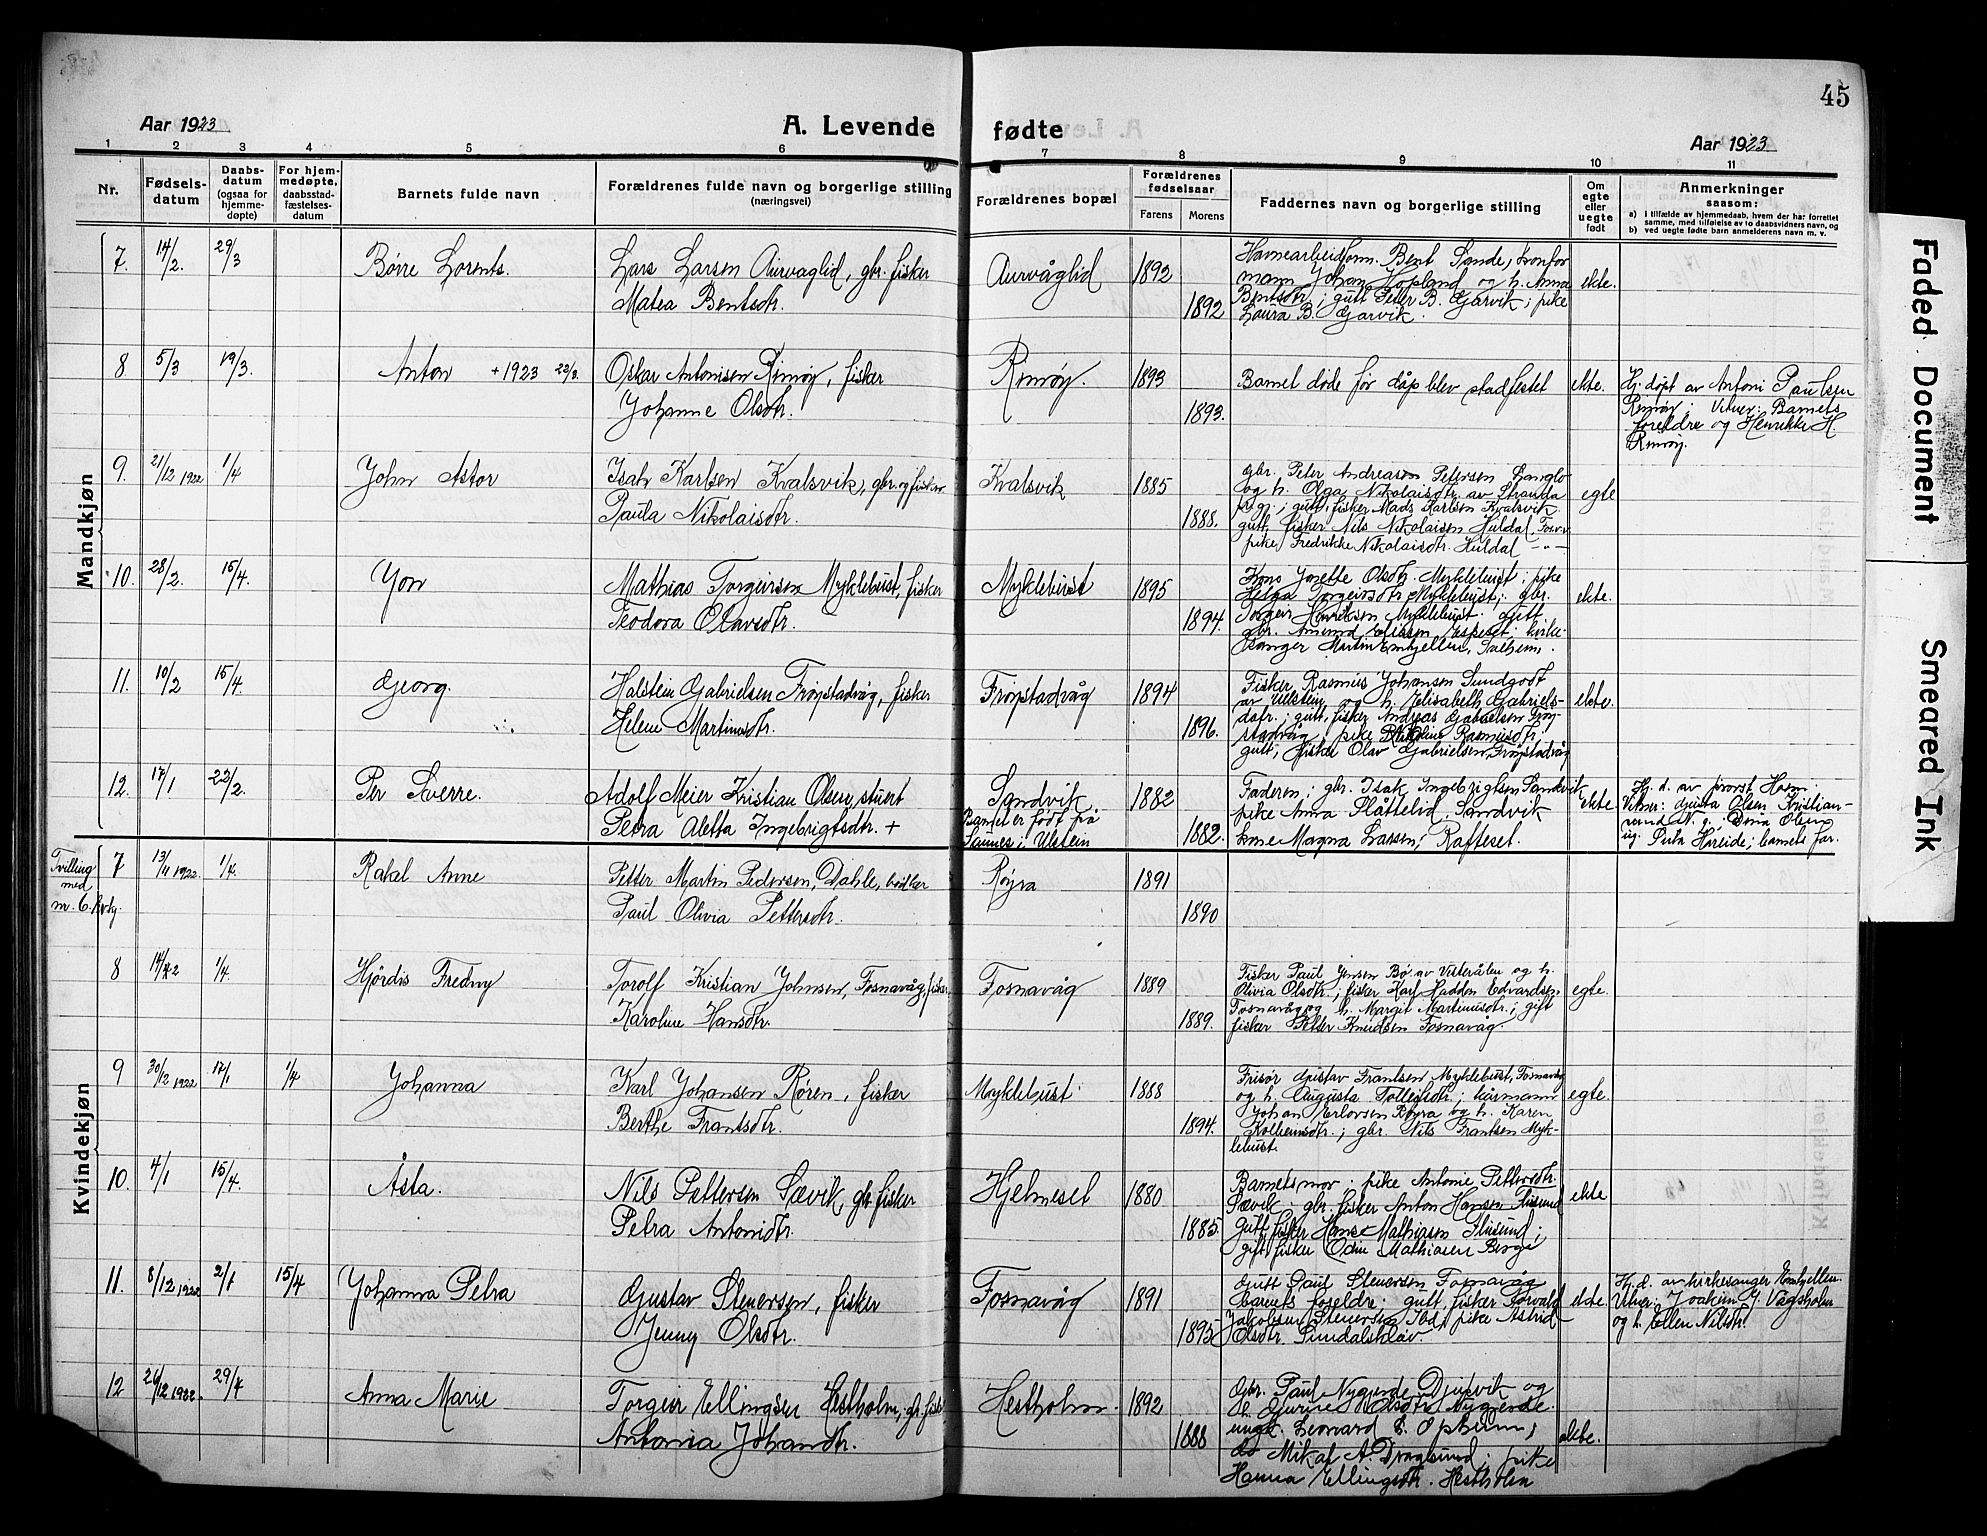 45
Aar 1923
A. Levende fødte
Aar 1923
1 2 3 4 5 6 7 8 9 10 11
Nr.
Fødsels-
datum
Daabs-
datum
(ogsaa for
hjemme-
døpte)
For hjem-
medøpte,
daabsstad-
fæstelses-
datum
Barnets fulde navn
Forældrenes fulde navn og borgerlige stilling
(næringsvei)
Forældrenes bopæl
Forældrenes
fødselsaar
Farens Morens
Faddernes navn og borgerlige stilling
Om
egte
eller
uegte
født
Anmerkninger
saasom:
a) i tilfælde av hjemmedaab, hvem der har forrettet
samme, med tilføielse av to daabsvidners navn, og
b) ved uegte fødte barn anmelderens navn m. v.
Mandkjøn
7. 14/2. 29/3 Børre Lorents. Lars Larsen Aurvaglid, gbr. fisker Aurvåglid 1892 Havnearbeidsform. Bent Sande,
Matea Bentsdtr. 1892
mann Johan Hopland og h. Anna ekte.
Bentsdtr; gutt Peter B. Garvik; pike
Laura B. Garvik.
8. 5/3 19/3. Anton +1923 22/3. Oskar Antonisen Remøy, fisker Remøy. 1893 Barnet døde før dåp blev stadfestet ekte. Hj. døpt av Antoni Paulsen
Johanne Olsdtr. 1893.
Remøy. Vitner: Barnets
foreldre og Henrikke H.
Remøy.
9. 21/12 1922 1/4 John Astor Isak Karlsen Kvalsvik, gbr. og fisker Kvalsvik 1885 gbr. Peter Andreas Petersen
Paula Nikolaisdtr. 1888.
og h. Olga Nikolaisdtr. av Stranda egte
prgj.; gutt, fisker Mads Karlsen Kvalsvik
gutt, fisker Nils Nikolaisen Huldal
pike, Fredrikke Nikolaisdtr. Huldal -"-
10. 28/2. 15/4. Jon Mathias Torgeirsen Myklebust, fisker Myklebust 1895 Kone Josette Olsdtr. Myklebust; pike
Teodora Olavsdtr. 1894.
Helga Torgeirsdtr Myklebust; gbr. ekte.
Torgeir Henriksen Myklebust. gutt
gbr. Amund Espeset; kirke-
sanger Martin Emhjellen,
11. 10/2 15/4. Georg. Halstein Gabrielsen Frøystadvåg, fisker Frøystadvåg 1894 Fisker Rasmus Johansen Sundgodt
Helene Martinusdtr. 1896.
av Ulstein og h. Elisabeth Gabriels- ekte.
dtr.; gutt, fisker Andreas Gabrielsen Frøy-
stadvåg, pike Oline Rasmusdtr;
gutt, fisker Olav Gabrielsen, Frøystadvåg
12. 17/1 22/2. Per Sverre. Adolf Meier Kristian Olsen, stuert Sandvik. 1882 Faderen; gbr. Isak Ingebrigtsen Sandvik ekte. Hj. d. av prost
Petra Aletta Ingebrigtsdtr. + Barnet er født på
Saunes i Ulstein 1882.
pike Anna Slåttelid, Sandvik
kone Magna Larsen, Rafteset.
Vitner: Gusta Olsen Kristian-
sund N. og Dina Olsen
og Petra Hareide; barnets far.
Kvindekjøn
Tvilling
med
nr. 6. hvkj.
7 13/11 1922. 1/4. Rakel Anne Petter Martin Pedersen, Dahle, bødker Røyra 1891
Paul Olivia Pettersdtr. 1890
8 14/12 1/4. Hjørdis Fredny Torolf Kristian Johnsen, Fosnavåg, fisker Fosnavåg 1889 Fisker Paul Jensen Bø av Vesterålen og h.
Karoline Hansdtr. 1889.
Olivia Olsdtr.; fisker Karl Haddon Edvardsen egte.
Fosnavåg og h. Margit Martinusdtr.; gift
fisker Petter Knudsen Fosnavåg.
9 30/12 1922 17/1 1/4 Johanna Karl Johansen Røren, fisker Myklebust. 1888 Frisør Gustav Frantsen Myklebust, Fosnavåg
Berthe Frantsdtr. 1894.
og h. Augusta Tollefsdtr; egte.
Johan Erlovsen Røyra og h. Karen
Kolbeinsdtr.; gbr. Nils Frantsen Myk-
lebust.
10. 4/1 15/4. Åsta. Nils Pettersen Sævik, gbr. fisker Hjelmeset 1880 Barnets mor; pike Antonie Pettersdtr.
Petra Antonidtr. 1885.
Sævik; gbr. fisker Anton Hansen Flusund ekte
Gutt, fisker Hans Mathiasen Flusund;
gift fisker Odin Mathiasen Berge
11. 8/12 1922 2/1 15/4 Johanna Petra Gustav Steuersen, fisker Fosnavåg 1891 Gutt Paul Steuersen Fosnavåg
Jenny Olsdtr. 1895
barnets foreldre; gutt, fisker Torvald ekte.
Jakobsen Steuersen Ibd, pike Astrid
Olsdtr.
Hj. d. av kirkesanger Emhjellen.
Vitner: Joakim J. Vågsholm
og h. Ellen Nilsdtr.
12 26/12 1922. 29/4 Anna Marie Torgeir Ellingsen Hestholm, gbr. fisker Hestholm. 1892 Gbr. Paul Nygjerde Djupvik og
Antonia Johansdtr. 1888
h. Gurine Olsdtr Nygjerde
ungk. Leonard E. Opheim, ekte.
do Mikal A. Dragsund; pike
Hanna Ellingsdtr. Hestholm
Faded Document
Smeared Ink